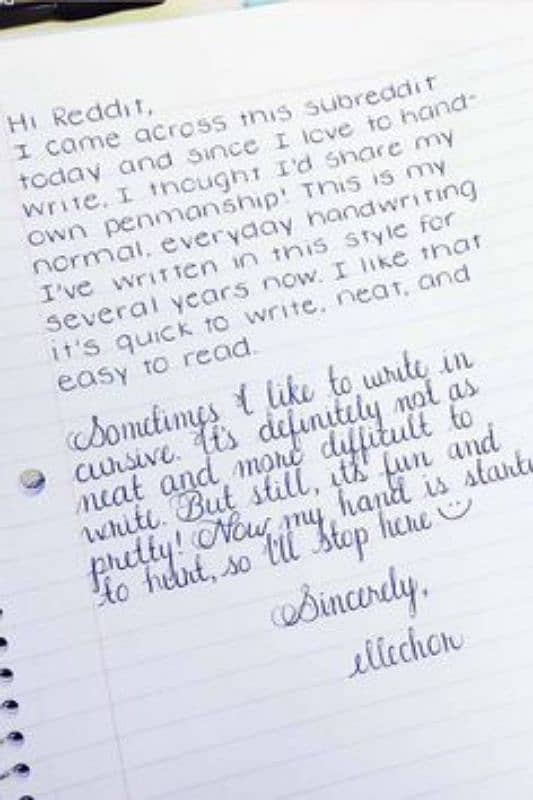 Hi Reddit,
I came across this subreddit
today and since I love to hand-
write, I thought I'd share my
own penmanship! This is my
normal, everyday handwriting
I've written in this style for
several years now. I like that
it's quick to write, neat, and
easy to read.
Sometimes I like to write in
cursive. It's definitely not as
neat and more difficult to
write. But still, it's fun and
pretty! Now my hand is starti
to hurt, so I'll stop here
Sincerely,
ellechon